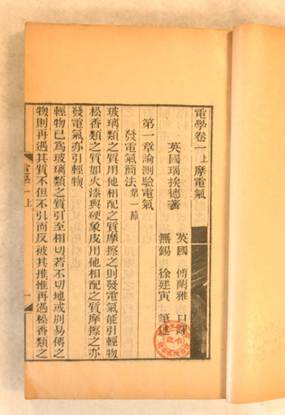 電學卷一上 摩電氣
英國瑙挨德著 英國 傅蘭雅 口譯
無錫 徐建寅 筆述
第一章論測驗電氣
發電氣簡法 第一節
玻璃類之質用他相配之質摩擦之則發電氣能引輕物
松香類之質如火漆與硬象皮用他相配之質摩擦之亦
發電氣亦引輕物
輕物已爲玻璃類之質引至相切若不切地或別易傳之
物則再遇其質不但不引而反被其推惟再遇松香類之